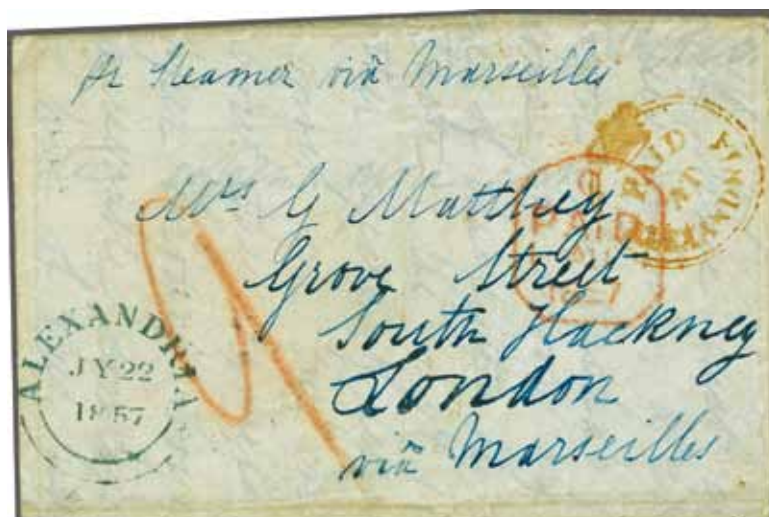 pr Steamer viâ Marseilles
PAID AT ALEXANDRIA
Mrs G Matthey
PAID
Grove Street
South Hackney
London
viâ Marseilles
ALEXANDRIA
JY 22
1857
9